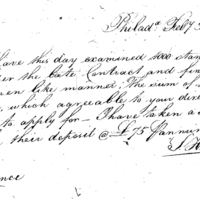 Philada Feby
have this day examined 1000 stan
the late Contract and fin
in like manner; The sum of
, which agreeable to your dire
to apply for — I have taken a
their deposit @ £75 P annum